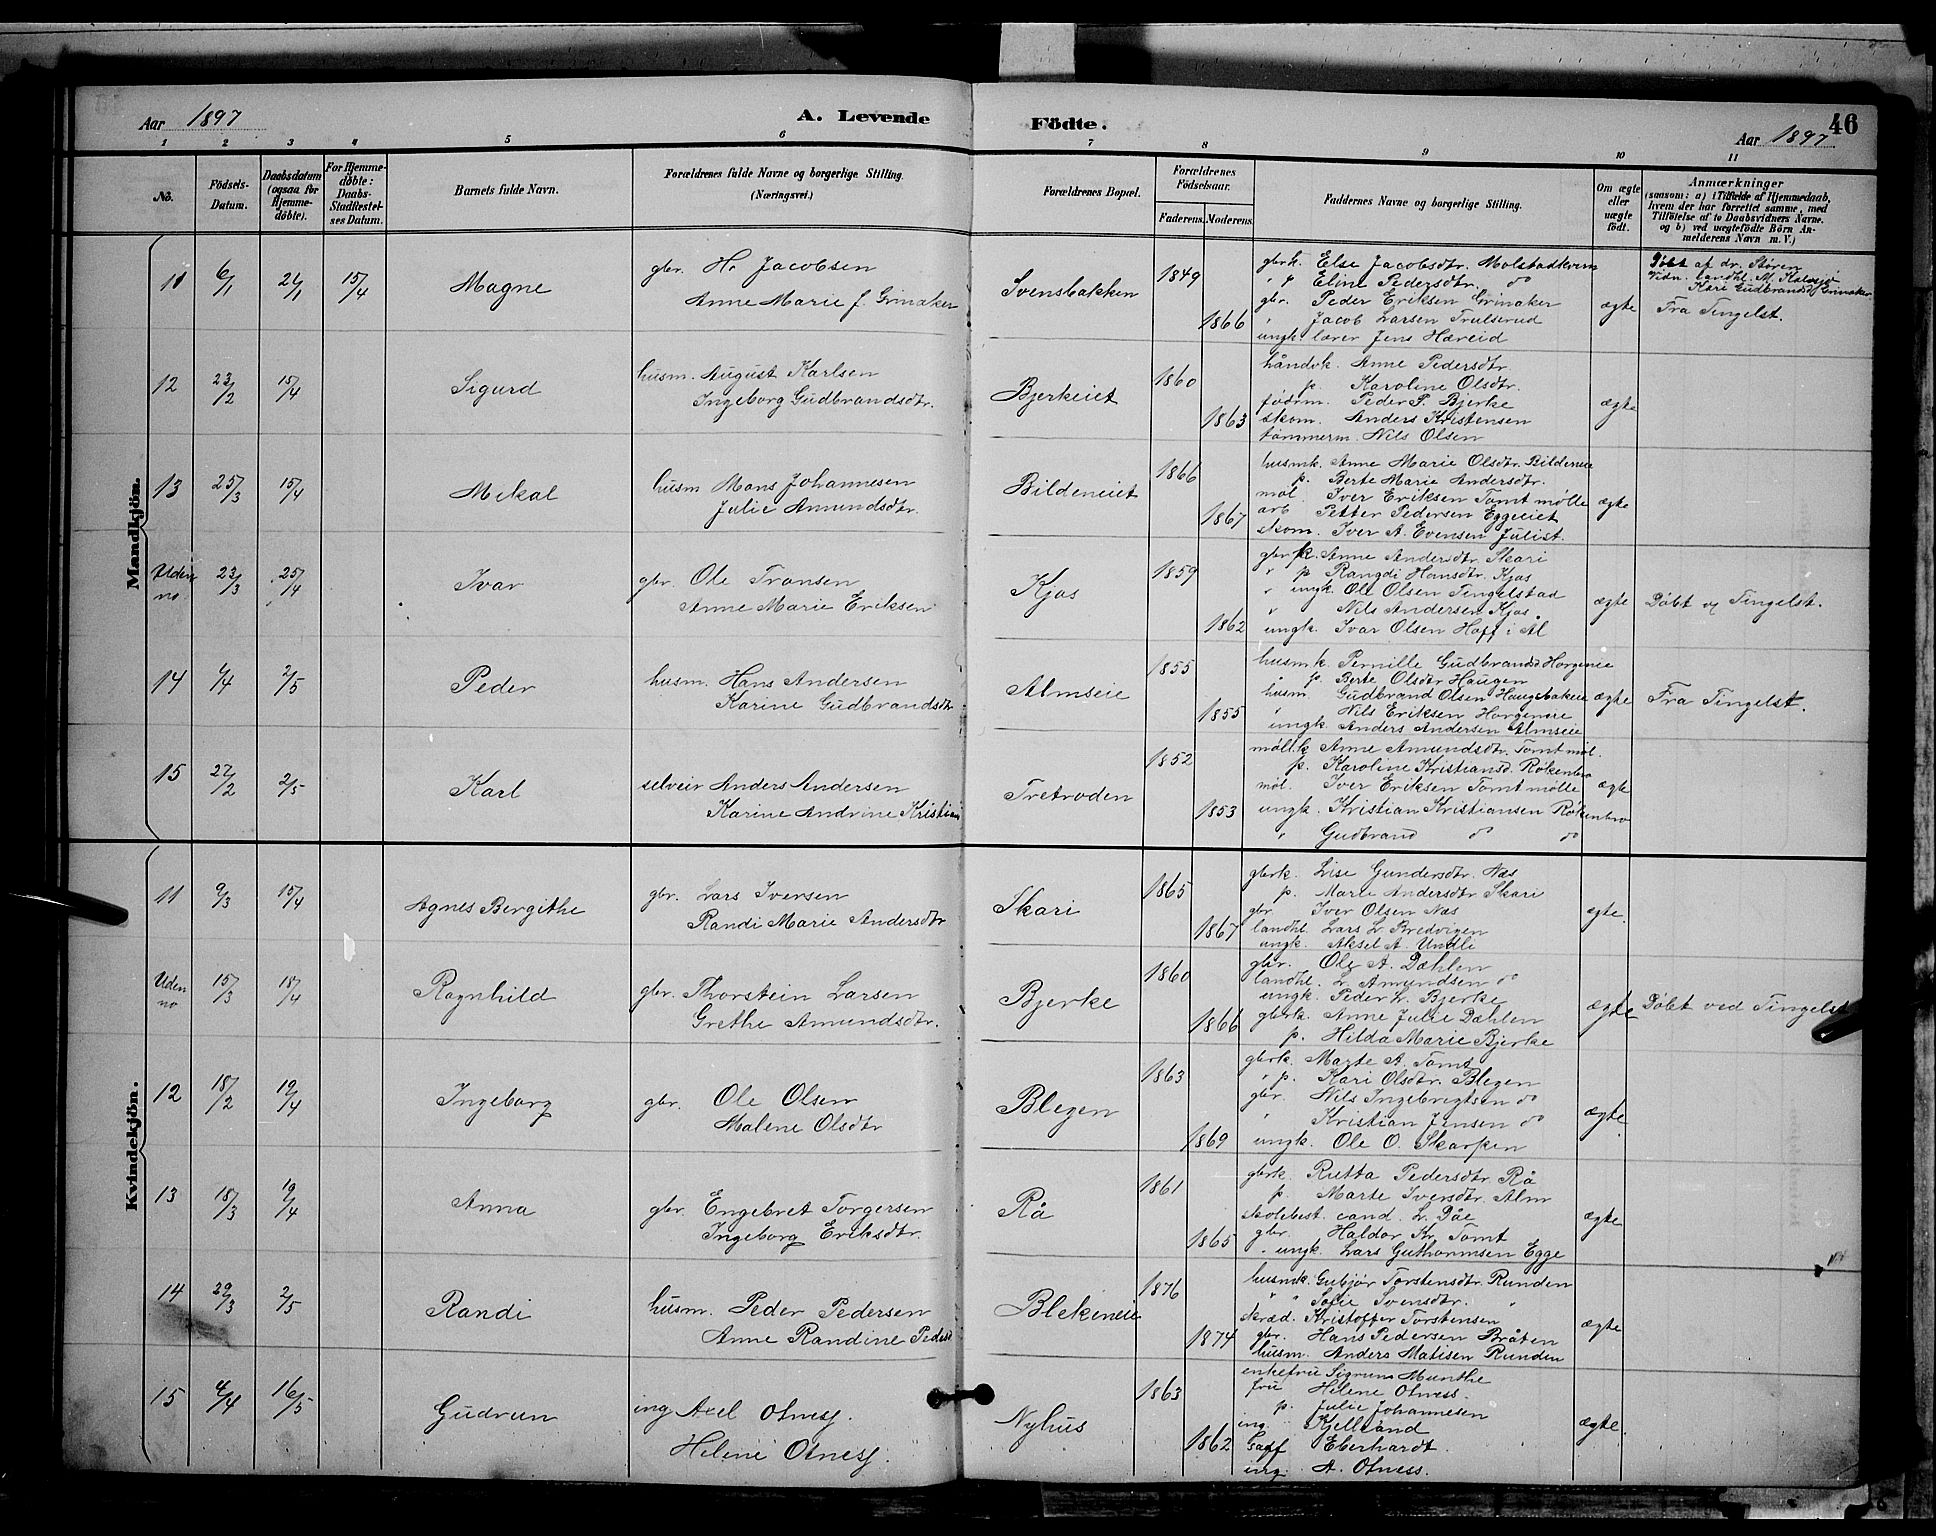 Aar 1897
A. Levende
Födte.
Aar 1897
46
1 2 3 4 5 6 7 8 9 10 11
No.
Födsels-Datum.
Daabsdatum (ogsaa for Hjemmedöbte).
For Hjemmedöbte: Daabs-Stadfestelses Datum.
Barnets fulde Navn.
Forældrenes fulde Navne og borgerlige Stilling. (Næringsvei.)
Forældrenes Bopæl.
Forældrenes Födselsaar.
Faderens.
Moderens.
Faddernes Navne og borgerlige Stilling.
Om ægte eller uægte födt.
Anmærkninger
(saasom: a) i Tilfælde af Hjemmedaab, hvem der har forrettet samme, med Tilföielse af to Daabsvidners Navne, og b) ved uægtefödte Börn Anmelderens Navn m. V.)
Mandkjön.
11 6/1 21/1 15/4 Magne
gbr. H. Jacobsen
Anne Marie f. Grinaker
Svensbakken 1849 1866
gbrk. Else Jacobsdtr. Molstadkvern
" p Eline Pedersdtr. do
gbr. Peder Eriksen Grinaker
" Jacob Larsen Trulserud
ungk. lærer Jens Hæreid
ægte
Döbt af dr. Støren
Vidn. landhl. M.
Kari Gudbrandsd Grinaker
Fra Tingelst.
12 23/2 15/4 Sigurd
husm. August Karlsen
Ingeborg Gudbrandsdtr.
Bjerkeiet 1860 1863
håndvk. Anne Pedersdtr
p. Karoline Olsdtr.
födrm. Peder P. Bjerke
skom. Anders Kristensen
tömmerm. Nils Olsen
ægte
13 25/3 15/4 Mikal
husm Mons Johannesen
Julie Amundsdtr.
Bildeneiet 1866 1867
husmk. Anne Marie Olsdtr. Bildeneie
p. Berte Marie Andersdtr.
møl. Iver Eriksen Tomtmølle
arb Petter Pedersen Eggeiet
skom. Iver A. Evensen Julist.
ægte
Uden no. 23/3 25/4 Ivar
gbr. Ole Transen
Anne Marie Eriksen
Kjos 1859 1862
gbrk. Anne Andersdtr. Skari
" p Rangdi Hansdtr. Kjos
" ungk. Ole Olsen Tingelstad
" Nils Andersen Kjos
ungk. Ivar Olsen Hoff i Ål
ægte
Döbt v. Tingelst.
14 4/4 2/5 Peder
husm. Hans Andersen
Karine Gudbrandsdtr
Almseie 1855 1855
husmk. Pernille Gudbrandsd Horgeneie
" p. Berte Olsdtr Haugen
husm Gudbrand Olsen Haugsbakeie
" Nils Eriksen Horgeneie
ungk. Anders Andersen Almseie
ægte
Fra Tingelst.
15 27/2 2/5 Karl
selveir Anders Andersen
Karine Andrine Kristian
Tretroden 1852 1853
møllk. Anne Amundsdtr. Tomt møl.
p. Karoline Kristiansd. Røkenbro
møl. Iver Eriksen Tomtmølle
ungk. Kristian Kristiansen Røkenbro
" Gudbrand do do
ægte
Kvindekjön.
11 9/3 15/4 Agnes Bergithe
gbr. Lars Iversen
Randi Marie Andersdtr
Skari 1865 1867
gbrk. Lise Gundersdtr. Næs
p. Marie Andersdtr Skari
gbr Iver Olsen Næs
landhl. Lars L. Bredvigen
ungk. Aksel A. Undli
ægte.
Uden no 15/3 18/4 Ragnhild
gbr. Thorstein Larsen
Grethe Amundsdtr.
Bjerke 1860 1866
gbr. Ole A. Dæhlen
landhl. L. Amundsen do
ungk. Peder L. Bjerke
gbrk. Anne Julie Dæhlen
p. Hilda Marie Bjerke
ægte
Döbt ved Tingelst
12 18/2 19/4 Ingeborg
gbr. Ole Olsen
Malene Olsdtr
Blegen 1863 1869
gbrk. Marte A. Tomt
" p. Kari Olsdtr. Blegen
gbr. Nils Ingebrigtsen do
" Kristian Jensen do
ungk. Ole O. Skarpen
ægte.
13 18/3 19/4 Anna
gbr. Engebret Torgersen
Ingeborg Eriksdtr.
Rå 1861 1865
gbrk. Rutta Pedersdtr Rå
p. Marte Iversdtr. Alm
skolebest. cand. L. Dåe
gbr. Haldor Kr. Tomt
" ungk. Lars Guthormsen Egge
ægte
14 29/3 2/5 Randi
husm. Peder Pedersen
Anne Randine Pedersd
Blekeneie 1876 1874
husmk. Gubjør Torstensdtr. Runden
" " Sofie Svensdtr. "
skræd. Kristoffer Torstensen
gbr. Hans Pedersen Bråten
husm. Anders Matisen Runden
ægte
15 4/4 16/5 Gudrun
ing Axel Otness.
Helene Otness.
Nyhus 1863 1862
enkefru Sigrun Munthe
fru Helene Otness.
p. Julie Johannesen
ing. Kjelland
Eberhardt.
ing. A. Otness.
ægte.